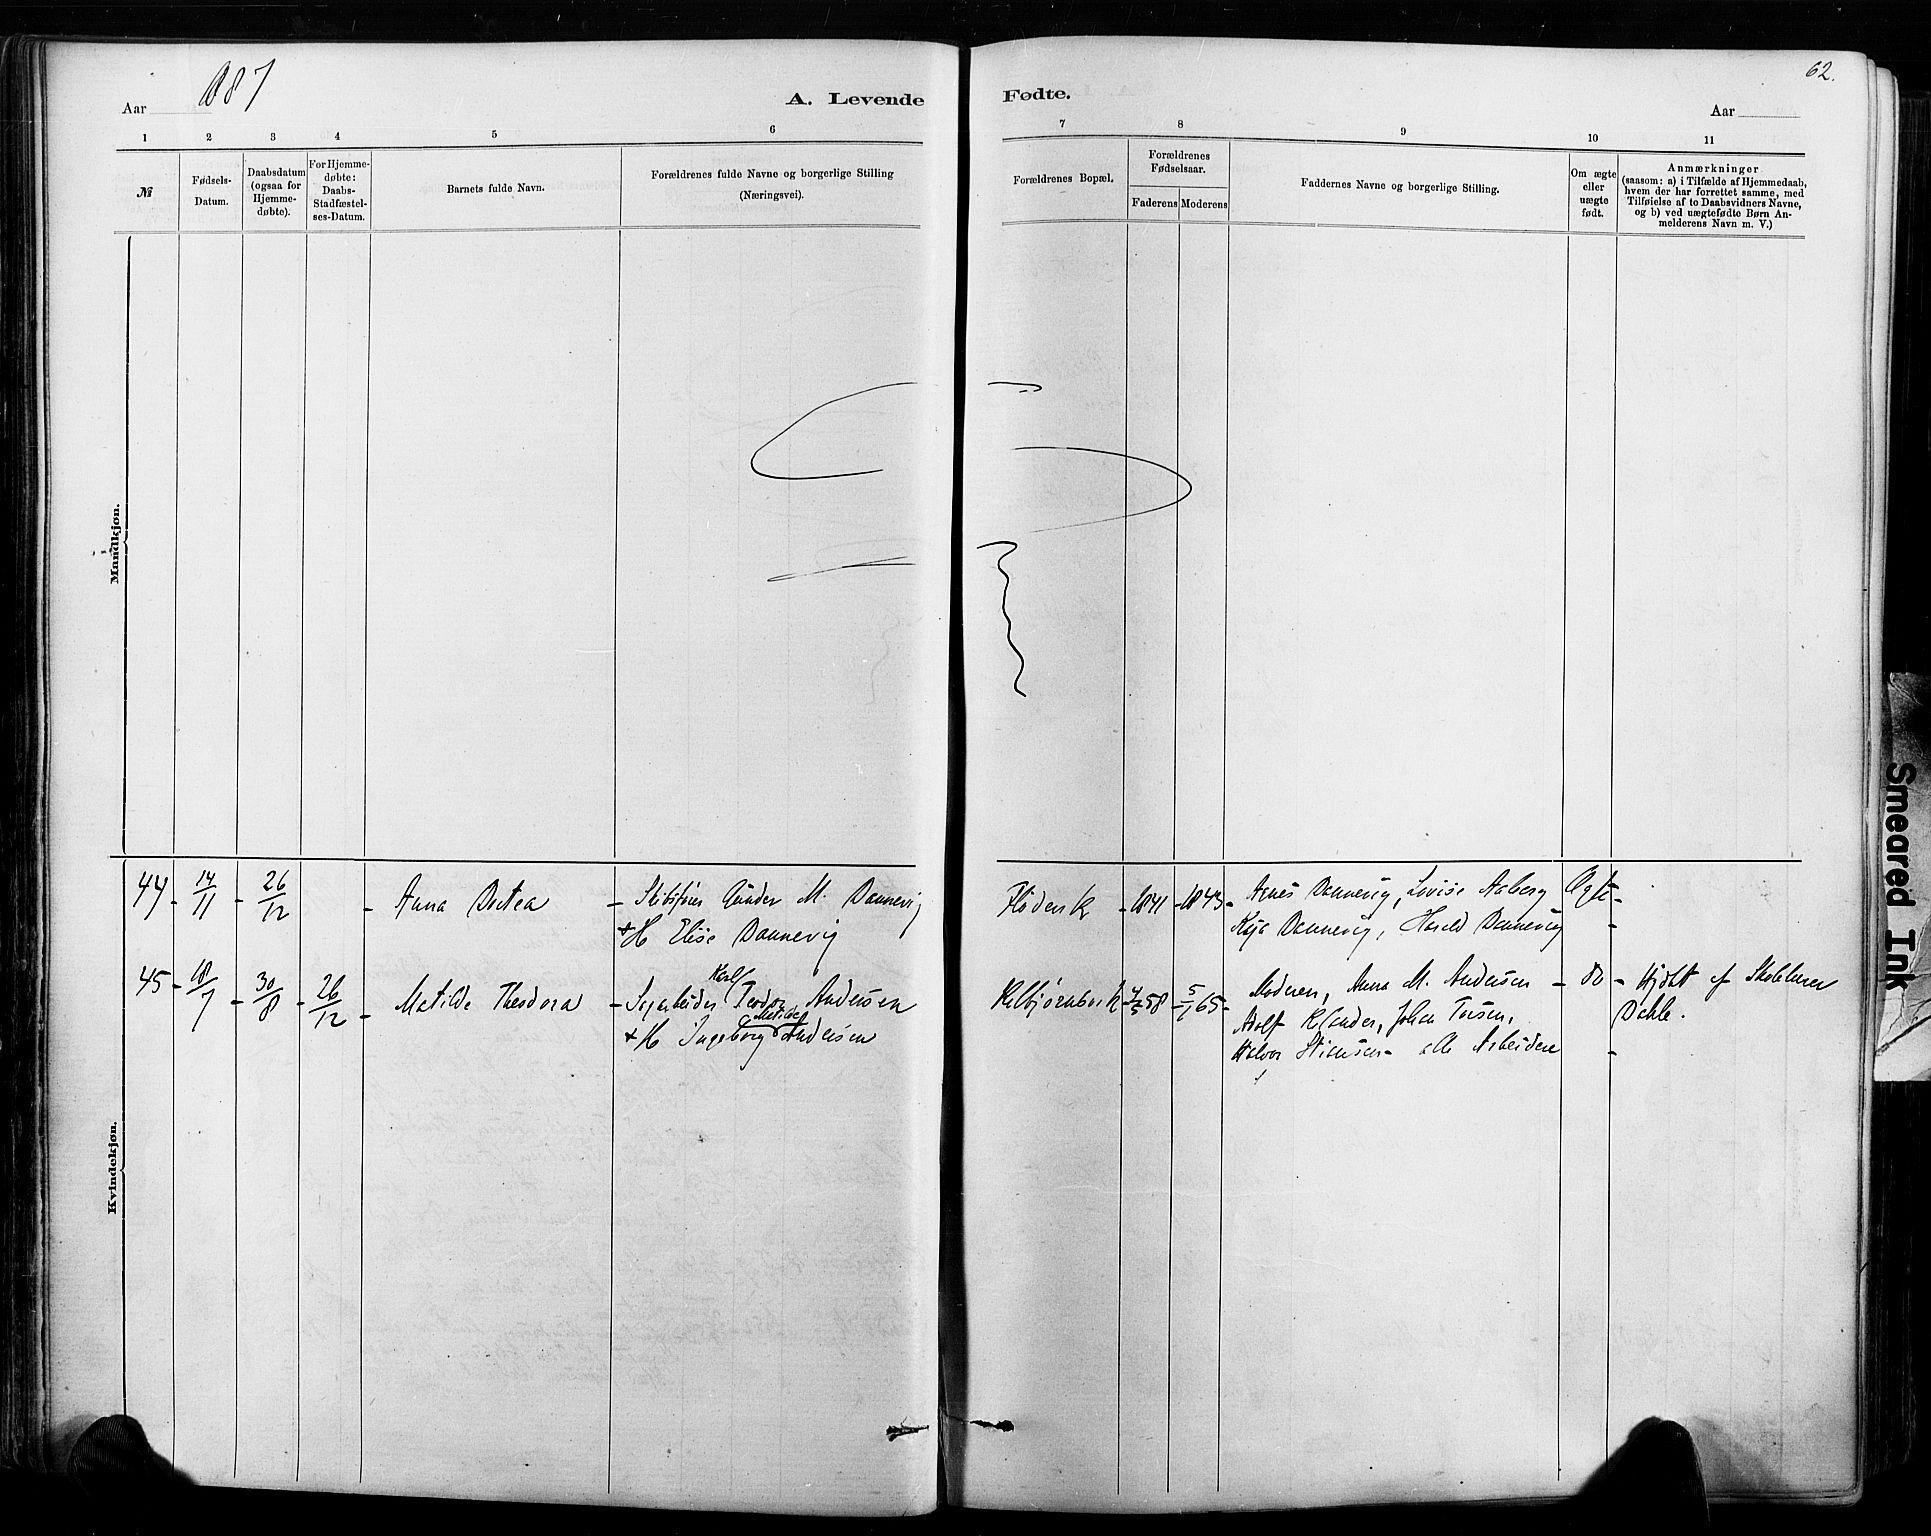 Aar 1887
A. Levende Fødte.
62.
Aar
1 2 3 4 5 6 7 8 9 10 11
№
Fødsels-
Datum.
Daabsdatum
(ogsaa for
Hjemme-
døbte).
For Hjemme-
døbte:
Daabs-
Stadfæstel-
ses-Datum.
Barnets fulde Navn.
Forældrenes fulde Navne og borgerlige Stilling
(Næringsvei).
Forældrenes Bopæl.
Forældrenes
Fødselsaar.
Faderens Moderens
Faddernes Navne og borgerlige Stilling.
Om ægte
eller
uægte
født.
Anmærkninger
(saasom: a) i Tilfælde af Hjemmedaab,
hvem der har forrettet samme, med
Tilføielse af to Daabsvidners Navne,
og b) ved uægtefødte Børn An-
melderens Navn m. V.)
Mandkjøn.
Kvindekjøn.
44 - 14/11 - 26/12 - Anna - Gunder M. Dannevig
+ H Elise Dannevig
- 1841 - 1843 - Agnes Dannevig, Lovise Aaberg
Kaja Dannevig, Harald Dannevig
Ægte -
45 - 18/7 - 30/8 - 26/12 - Matilde Theodora - Karl Teodor Andersen
+ H Ingeborg Matilde Andersen
58 - 5/1 65 - Moderen, Anna M. Andersen - do - Hjdbt af
Adolf Johan
Dahle.
Halvor alle Arbeidere
Smeared Ink